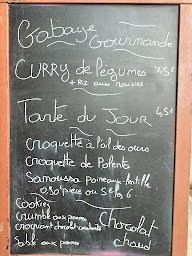 Gabaye Gourmande
CURRY de légumes 7,5€
+ Riz aux raisins
Tarte du Jour 4,5€
croquette à l'ail des ours
Croquette de Polenta
Samoussa Poireaux-lentille
0,90 pièce ou 5€ les 6
Cookies
Crumble aux pommes
croquant chocolat cacahuète
Sablé aux pommes
Chocolat
chaud